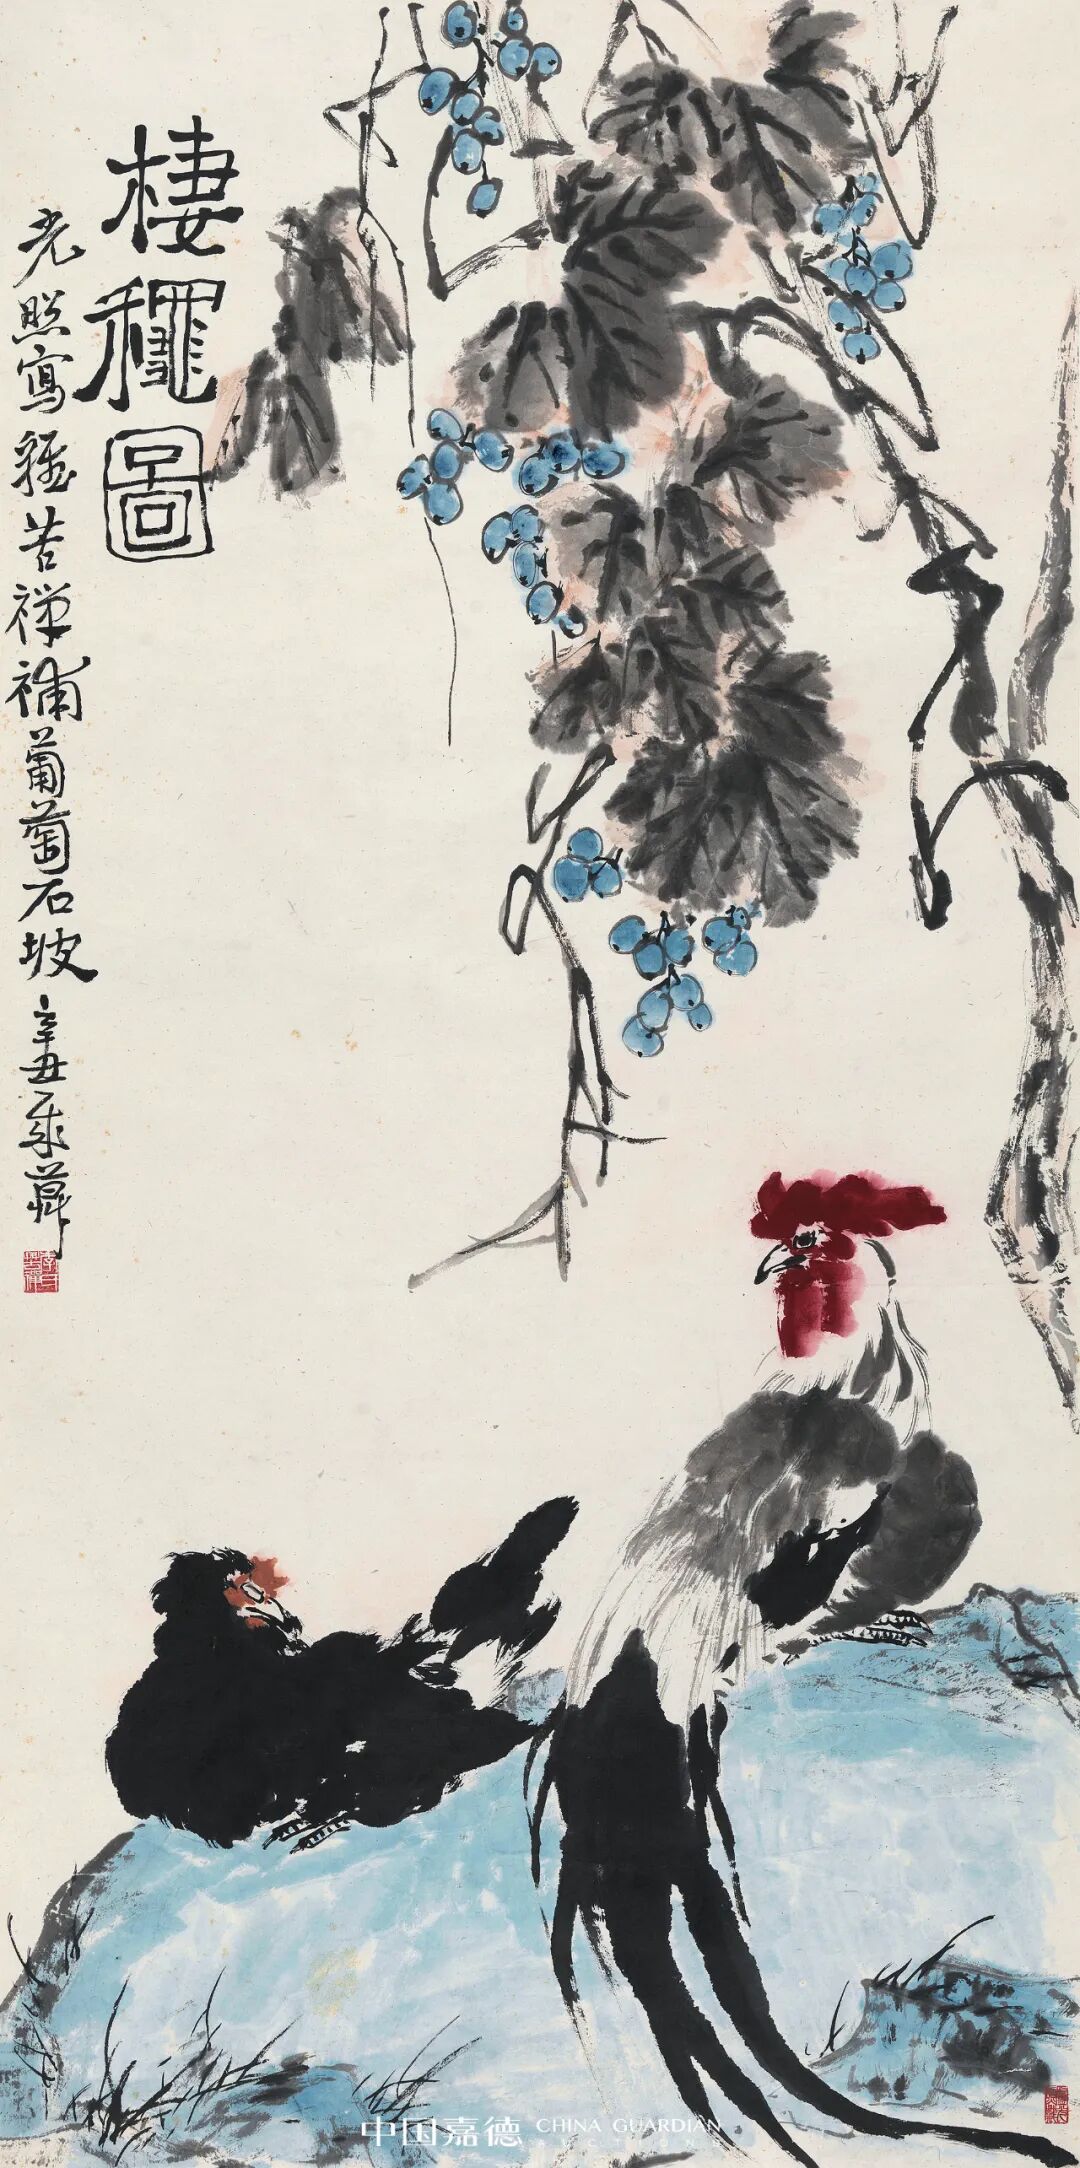 棲圖
光照寫雞苦禪補葡萄石坡辛丑
中国嘉德 CHINA GUARDIAN
AUCTIONS